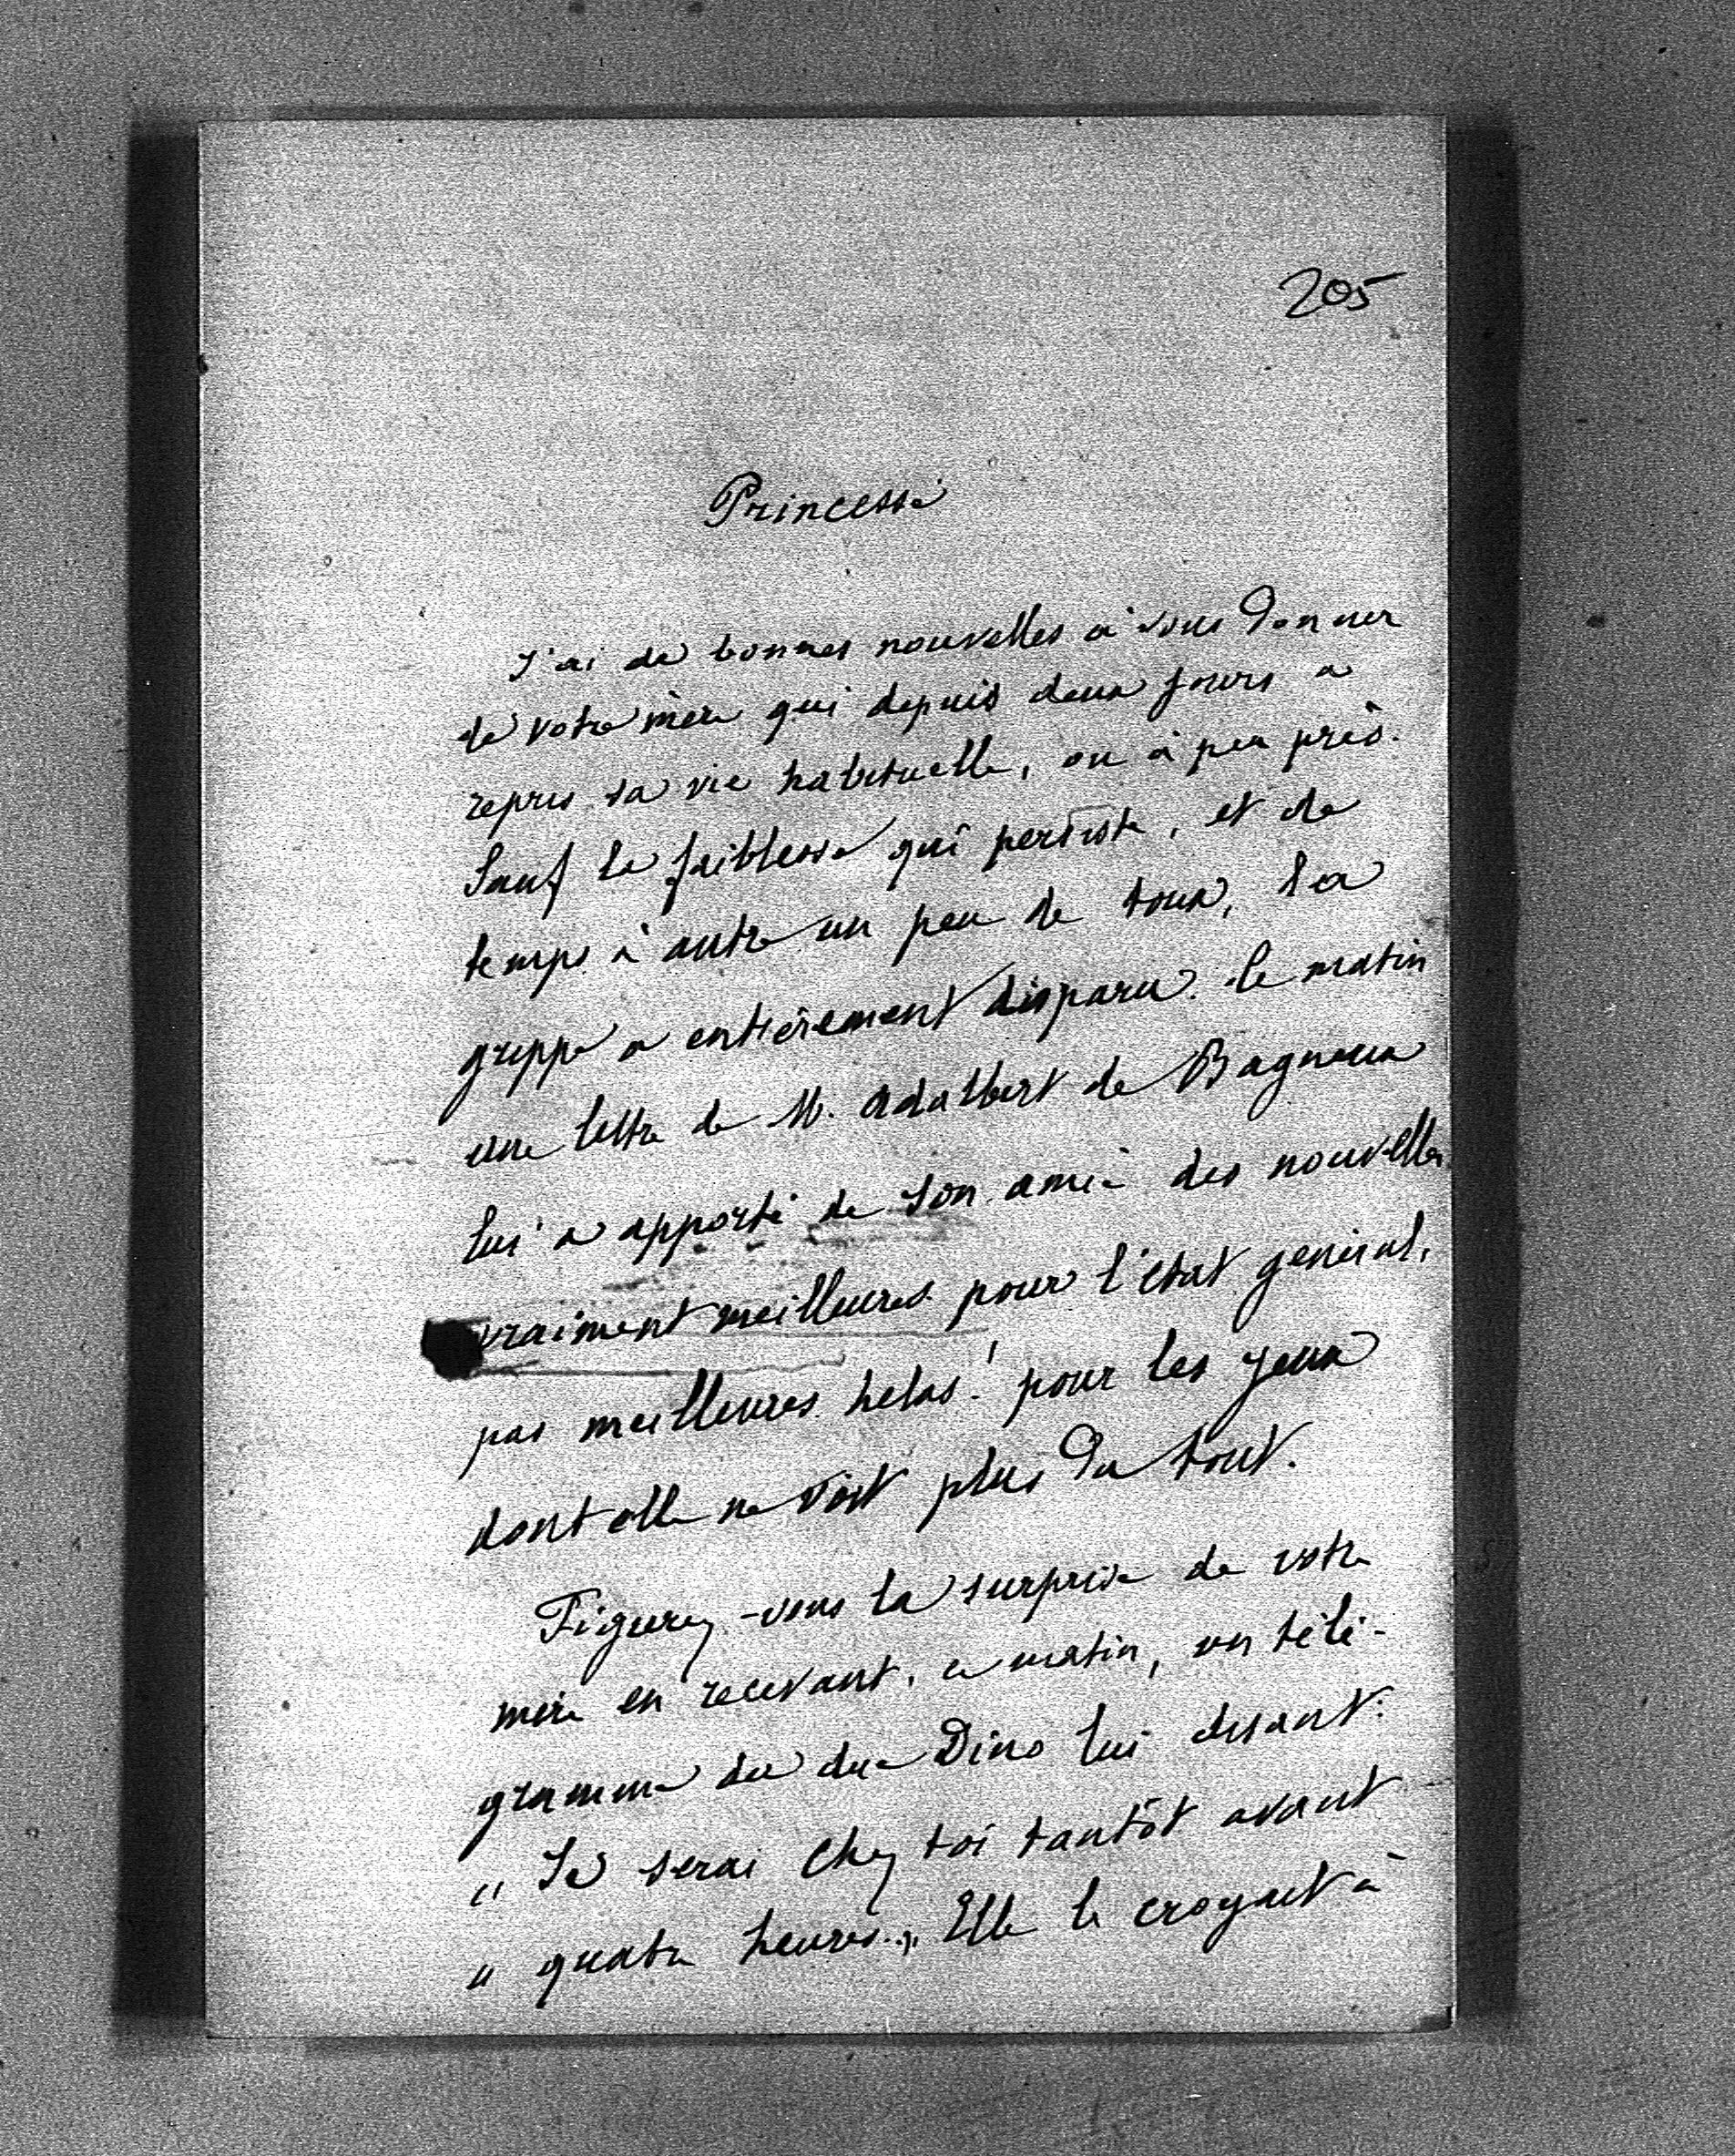 205
Princesse
J'ai de bonnes nouvelles à vous donner
de votre mère qui depuis deux jours a
repris sa vie habituelle, ou à peu près.
Sauf la faiblesse qui persiste, et de
temps à autre un peu de toux, la
grippe a entièrement disparu. Ce matin
une lettre de M. Adalbert de Bagneux
lui a apporté de son amie des nouvelles
vraiment meilleures pour l'état général,
pas meilleures hélas! pour les yeux
dont elle ne voit plus du tout.
Figurez-vous la surprise de votre
mère en recevant, ce matin, un télé-
gramme du duc Dino lui disant:
" Je serai chez toi tantôt avant
" quatre heures. " Elle le croyait à